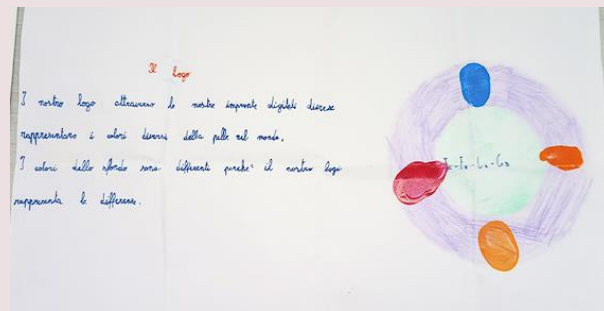 Il Logo
I nostro logo attraverso le nostre impronte digitali diverse
rappresentano i colori diversi della pelle nel mondo.
I colori dello sfondo sono differenti perché il nostro logo
rappresenta le differenze.